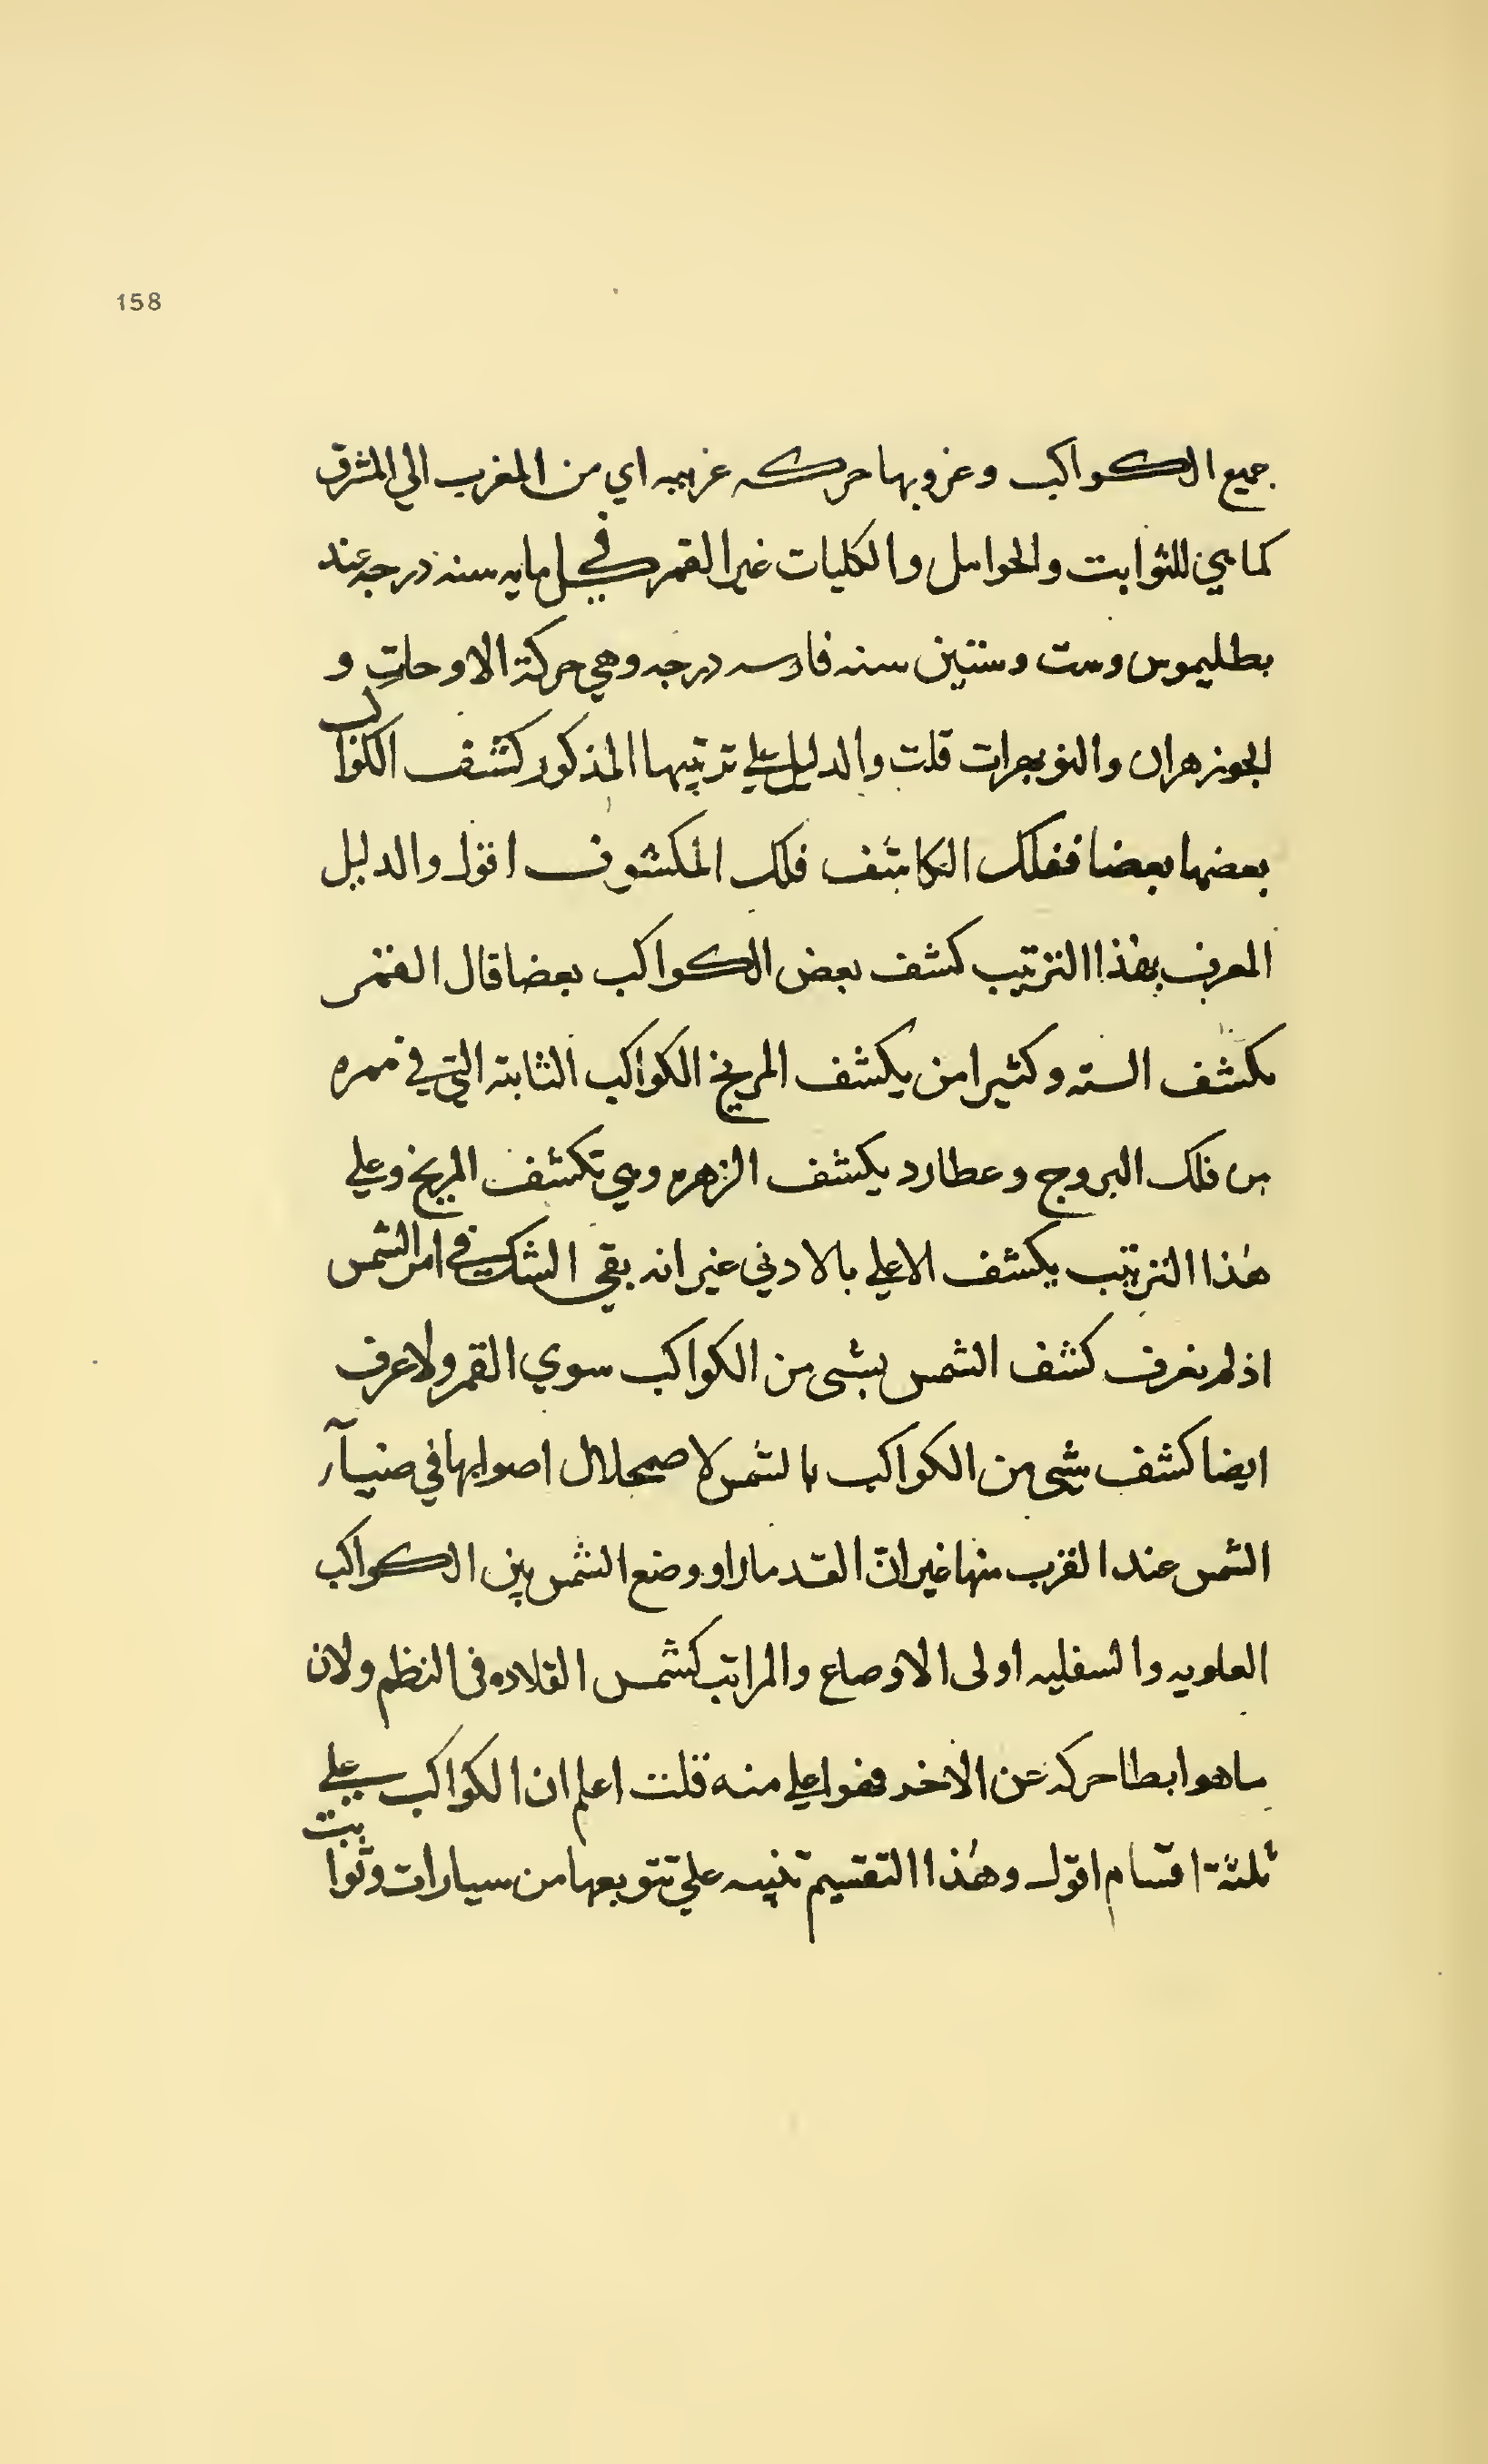 158
جميع الكواكب وغروبها حركه غربيه اي من المغرب الي المشرق
كما هي للثوابت والحوامل والكليات غير القمر في كل مايه سنه درجه عند
بطليموس وست وستين سنه فارسه درجه وهي حركة الاوحات و
الجوزهران والنوبهرات قلت والدليل علي ترتيبها المذكور كشف الكواكب
بعضها بعضا ففلك الكاشف فلك المكشوف اقول والدليل
المعرف بهذا الترتيب كشف بعض الكواكب بعضا قال القمر
يكشف السته وكثيرا من يكشف المريخ الكواكب الثابته التي في ممره
من فلك البروج وعطارد يكشف الزهره وهي تكشف المريخ وعلي
هذا الترتيب يكشف الاعلي بالادني غير انه بقي الشك في امر الشمس
اذ لم نعرف كشف الشمس بشى من الكواكب سوي القمر ولا عرف
ايضا كشف شي من الكواكب بالشمس لاضمحلال اضوايها في ضيآ
الشمس عند القرب منها غير ان القدما راو وضع الشمس بين الكواكب
العلويه والسفليه اولى الاوضاع والمراتب كشمس القلاده فى النظم ولان
ما هو ابطا حركه عن الاخر فهو اعلي منه قلت اعلم ان الكواكب علي
ثلثة اقسام اقول وهذا التقسيم تنبيه علي تنويعها من سيارات وثوابت